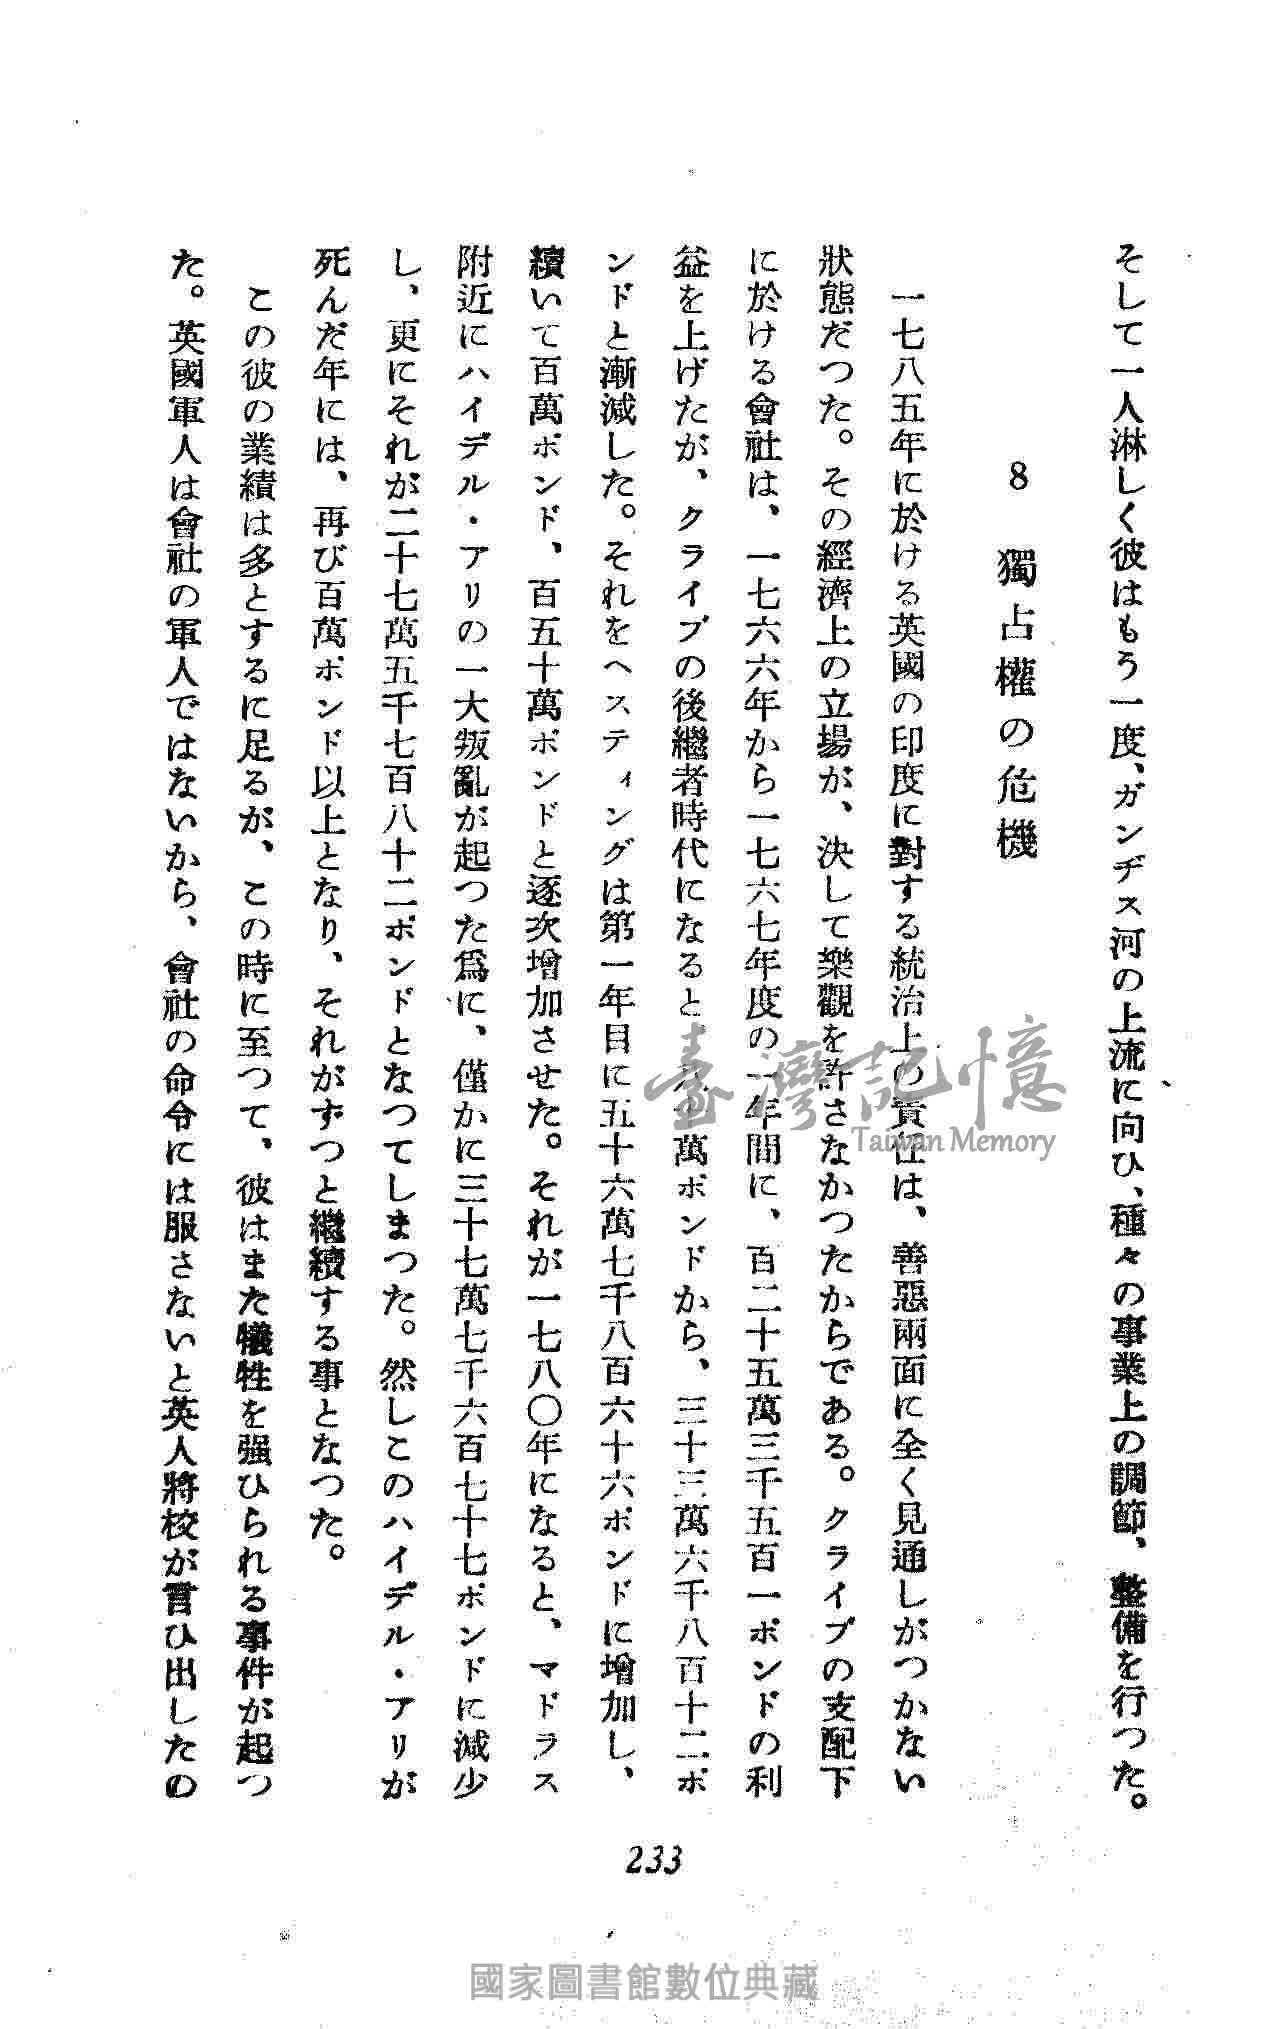 そして一人淋しく彼はもう一度、ガンヂス河の上流に向ひ、種々の事業上の調節、整備を行つた。
8 獨占權の危機
一七八五年に於ける英國の印度に對する統治上の責任は、善惡兩面に全く見通しがつかない
狀態だつた。その經濟上の立場が、決して樂觀を許さなかつたからである。クライブの支配下
に於ける會社は、一七六六年から一七六七年度の一年間に、百二十五萬三千五百一ポンドの利
益を上げたが、クライブの後繼者時代になると十萬ポンドから、三十三萬六千八百十二ポ
ンドと漸減した。それをヘスティングは第一年目に五十六萬七千八百六十六ポンドに增加し、
續いて百萬ポンド、百五十萬ポンドと逐次增加させた。それが一七八〇年になると、マドラス
附近にハイデル・アリの一大叛亂が起つた爲に、僅かに三十七萬七千六百七十七ポンドに減少
し、更にそれが二十七萬五千七百八十二ポンドとなつてしまつた。然しこのハイデル・アリが
死んだ年には、再び百萬ポンド以上となり、それがずつと繼續する事となつた。
この彼の業績は多とするに足るが、この時に至つて、彼はまた犧牲を强ひられる事件が起つ
た。英國軍人は會社の軍人ではないから、會社の命令には服さないと英人將校が言ひ出したの
233
臺灣記憶
Taiwan Memory
國家圖書館數位典藏